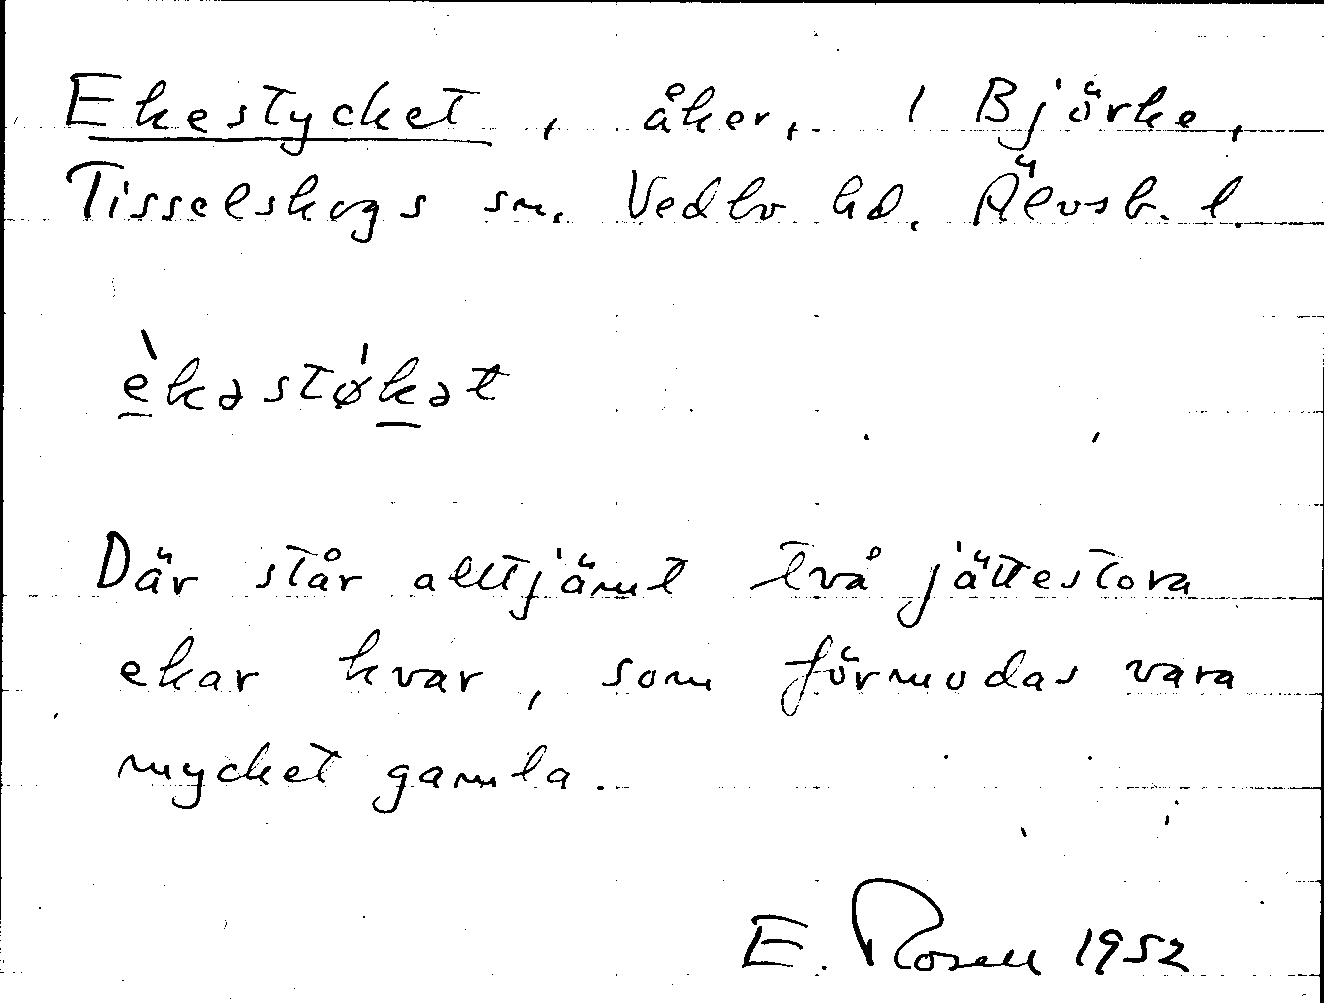 Ekestycket, åker, 1 Björke,
Tisselskogs sn. Vedbo hd. Älvsb. l.
è̱kəstø̍ḵət
Där står alltjämt två jättestora
ekar kvar, som förmodas vara
mycket gamla.
E. Rosell 1952